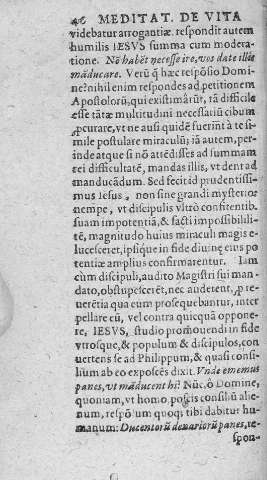 46 MEDITAT. DE VITA
videbatur arrogantiæ. respondit autem
humilis IESVS summa cum modera-
tione. Nō habēt necesse ire, vos date illis
māducare. Verū q̃ hæc respōsio Domi-
ne? nihil enim respondes ad petitionem
Apostolorū, qui existimārūt, rā difficile
esse tātæ multitudini necessariū cibum
ꝓcurare, vt ne ausi quidē fuerint à te si-
mile postulare miraculū; iā autem, per-
inde atque si nō attēdisses ad summam
rei difficultatē, mandas illis, vt dent ad
manducādum. Sed fecit id prudentissi-
mus Iesus, non sine grandi mysterio:
nempe, vt discipulis vltrò confitentib.
suam impotentiā, & facti impossibilili-
tē, magnitudo huius miraculi magis e-
lucesceret, ipsique in fide diuinę eius po
tentiæ amplius confirmarentur. Iam
cùm discipuli, audito Magistri sui man-
dato, obstupescerēt, nec auderet, ꝓ re-
verētia qua eum prosequebantur, inter
pellare eū, vel contra quicquā oppone-
re, IESVS, studio promouendi in fide
vtrosque, & populum & discipulos, con
uertens se ad Philippum, & quasi consi-
lium ab eo exposcēs dixit. Vnde ememus
panes, vt māducent hi? Nūc, ô Domine,
quoniam, vt homo, poscis consiliū alie-
num, respōsum quoq; tibi dabitur hu-
manum: Ducentorū denariorū panes, re-
spon-